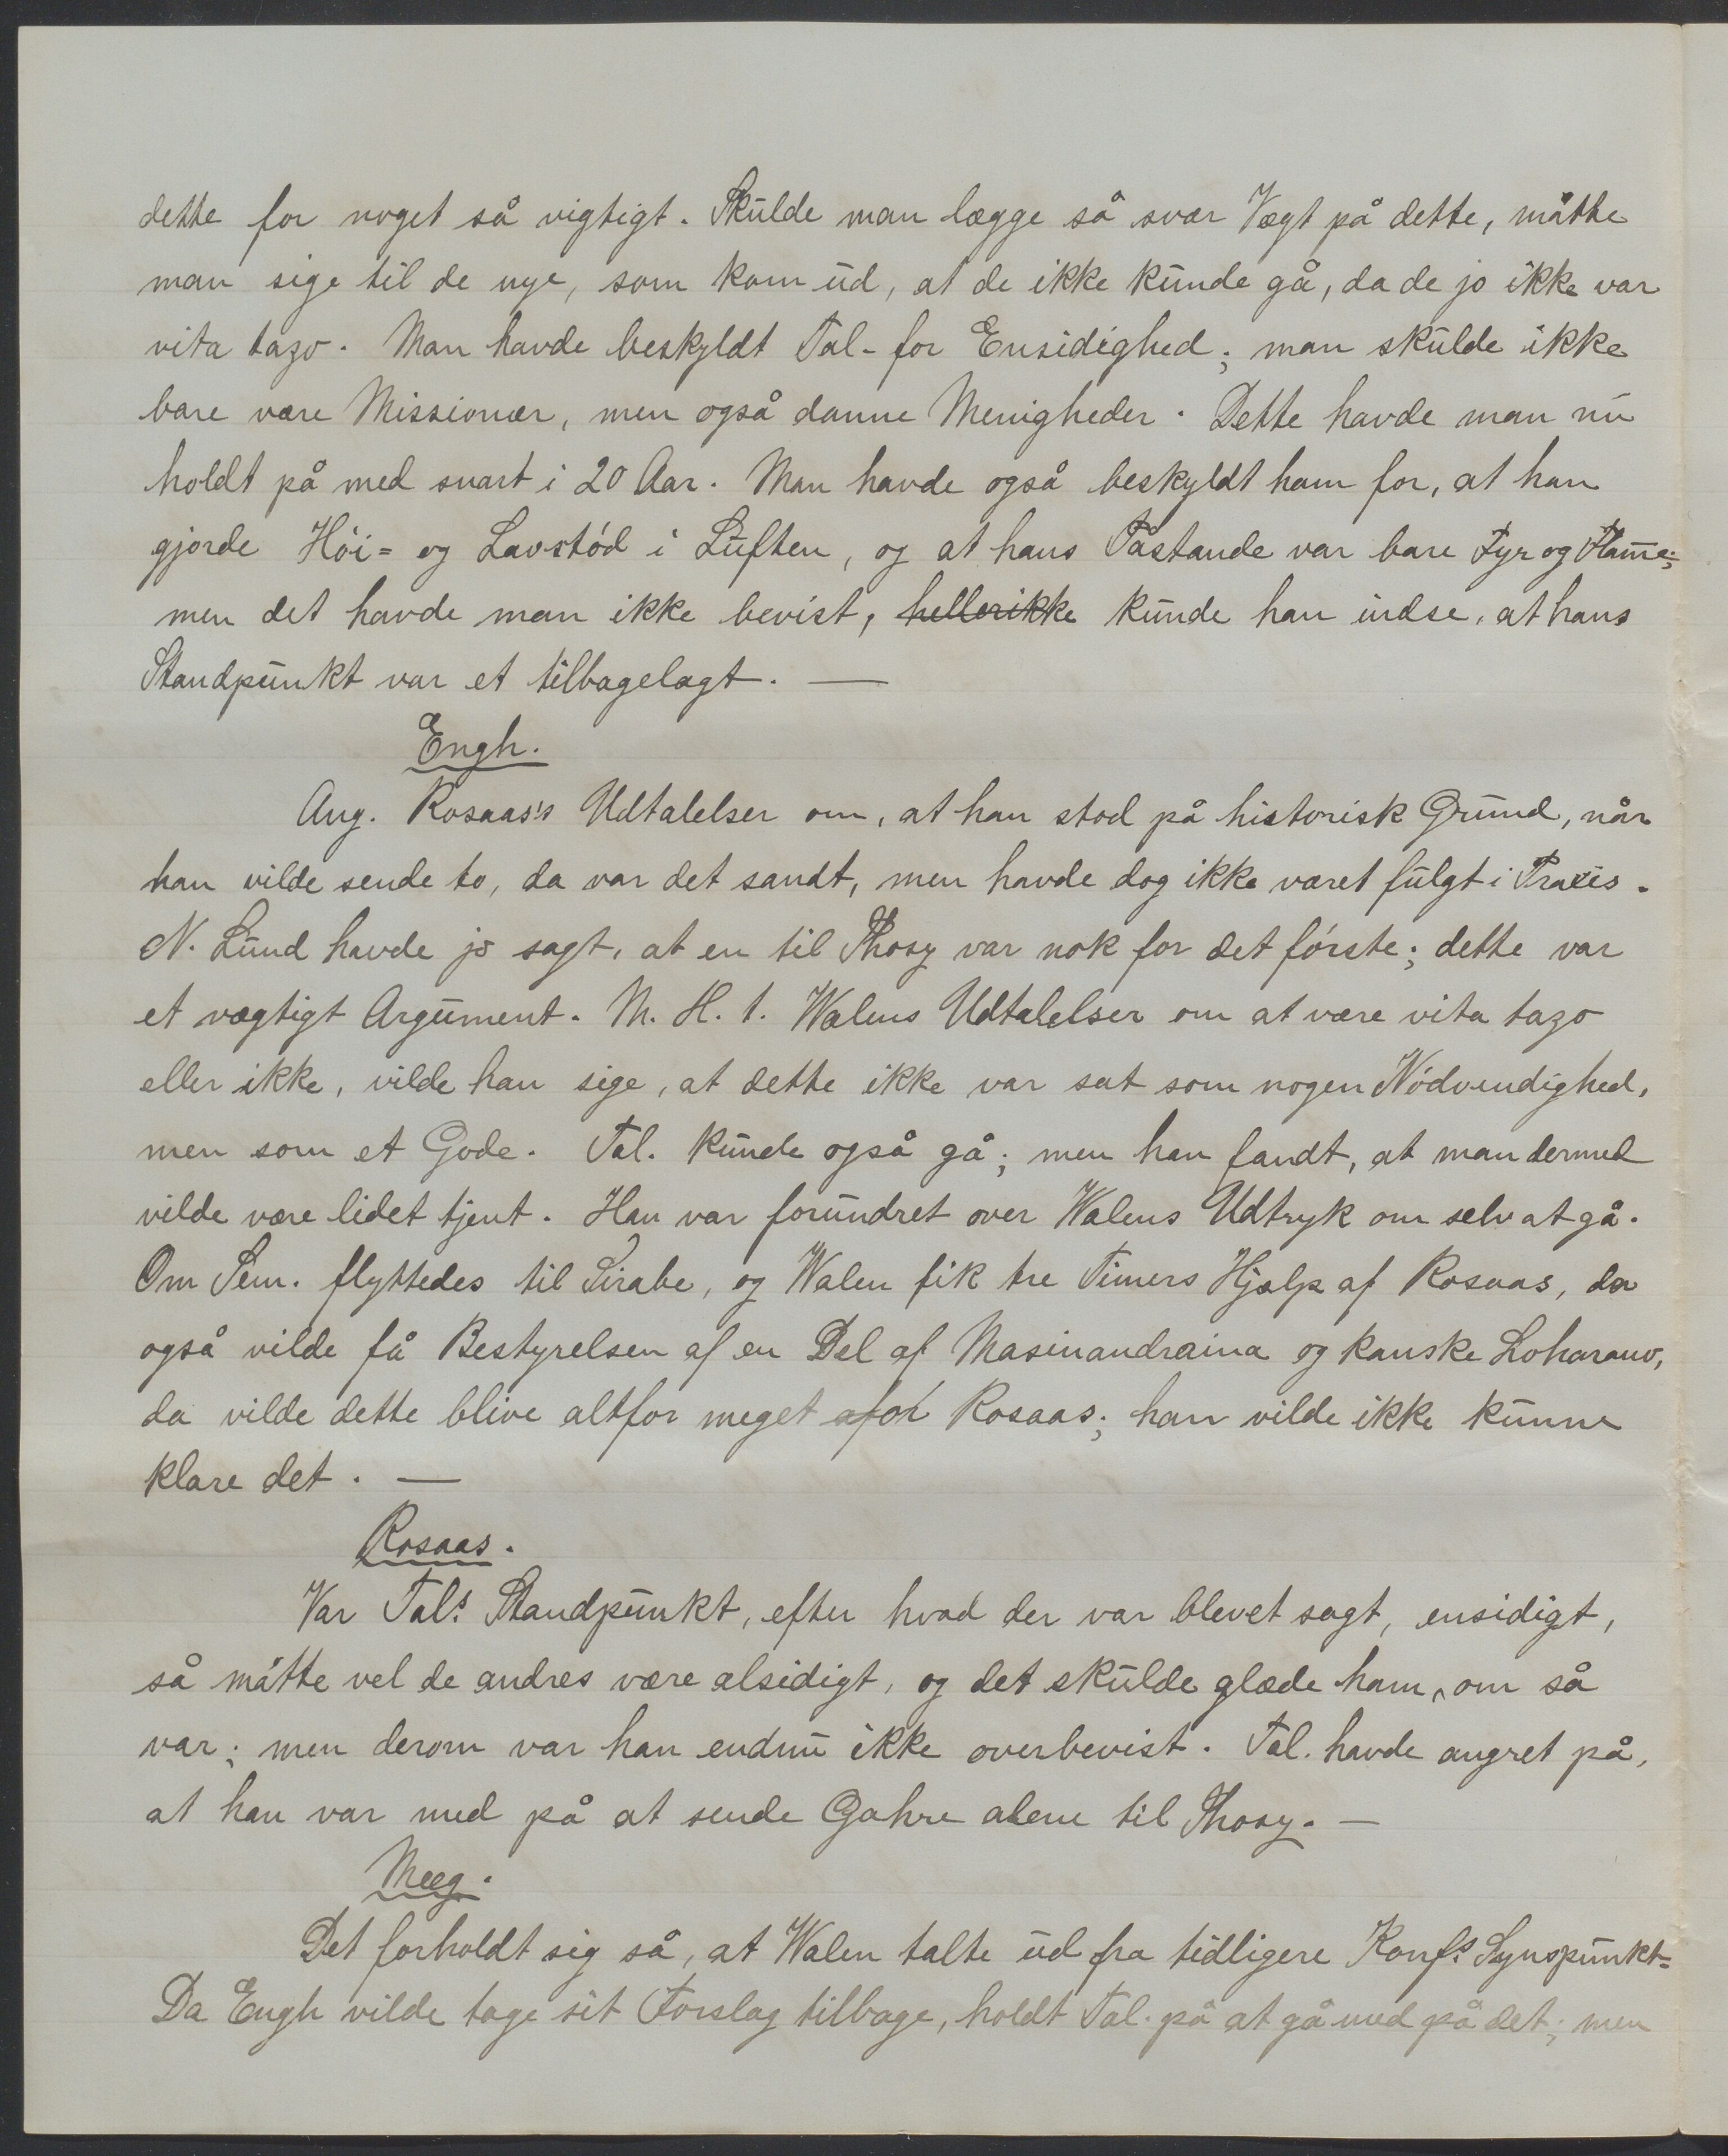 dette for noget så vigtigt. Skulde man lægge så svær Vægt på dette, måtte
man sige til de nye, som kom ud, at de ikke kunde gå, da de jo ikke var
vita tazo. Man havde beskyldt Tal. for Ensidighed; man skulde ikke
bare være Missionær, men også danne Menigheder. Dette havde man nu
holdt på med snart i 20 Aar. Man havde også beskyldt ham for, at han
gjorde Höi= og Lavstöd i Luften, og at hans Påstande var bare Fyr og Flamme;
men det havde man ikke bevist, hellerikke kunde han indse, at hans
Standpunkt var et tilbagelagt. —
Engh.
Ang. Rosaas's Udtalelser om, at han stod på historisk Grund, når
han vilde sende to, da var det sandt, men havde dog ikke været fulgt i Praxis.
N. Lund havde jo sagt, at en til Ihosy var nok for det förste; dette var
et vægtigt Argument. M. H. t. Walens Udtalelser om at være vita tazo
eller ikke, vilde han sige, at dette ikke var sat som nogen Nödvendighed,
men som et Gode. Tal. kunde også gå; men han fandt, at man dermed
vilde være lidet tjent. Han var forundret over Walens Udtryk om selv at gå.
Om Sem. flyttedes til Sirabe, og Walen fik tre Timers Hjælp af Rosaas, da
også vilde få Bestyrelsen af en Del af Masinandraina og kanske Loharano,
da vilde dette blive altfor meget for Rosaas; han vilde ikke kunne
klare det. —
Rosaas.
Var Tals Standpunkt, efter hvad der var blevet sagt, ensidigt,
så måtte vel de andres være alsidigt, og det skulde glæde ham, om så
var; men derom var han endnu ikke overbevist. Tal. havde angret på,
at han var med på at sende Gahre alene til Ihosy. —
Meeg.
Det forholdt sig så, at Walen talte ud fra tidligere Konfs Synspunkt=
Da Engh vilde tage sit Forslag tilbage, holdt Tal. på at gå med på det; men